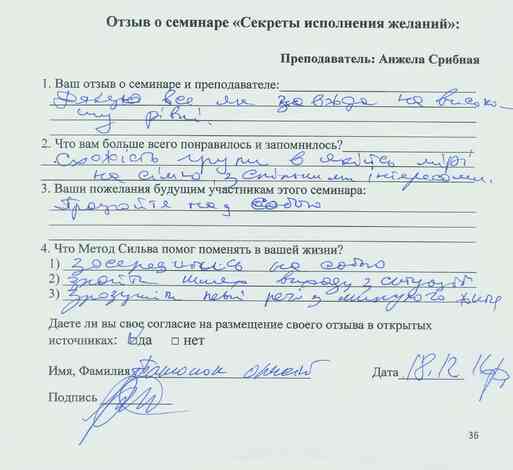 Отзыв о семинаре «Секреты исполнения желаний»:
Преподаватель: Анжела Срибная
1. Ваш отзыв о семинаре и преподавателе:
Дякую все як завжди на високо-
му рівні.
2. Что вам больше всего понравилось и запомнилось?
Схожість групи в якійсь мірі
на сім'ю, з спільними інтересами.
3. Ваши пожелания будущим участникам этого семинара:
Працюйте над собою
4. Что Метод Сильва помог поменять в вашей жизни?
1) Зосередитись на собі
2) Знайти шлях виходу з ситуації
3) Зрозуміти певні речі з минулого життя
Даете ли вы свое согласие на размещение своего отзыва в открытых
источниках: да □ нет
Имя, Фамилия Дата 18.12
Подпись
36